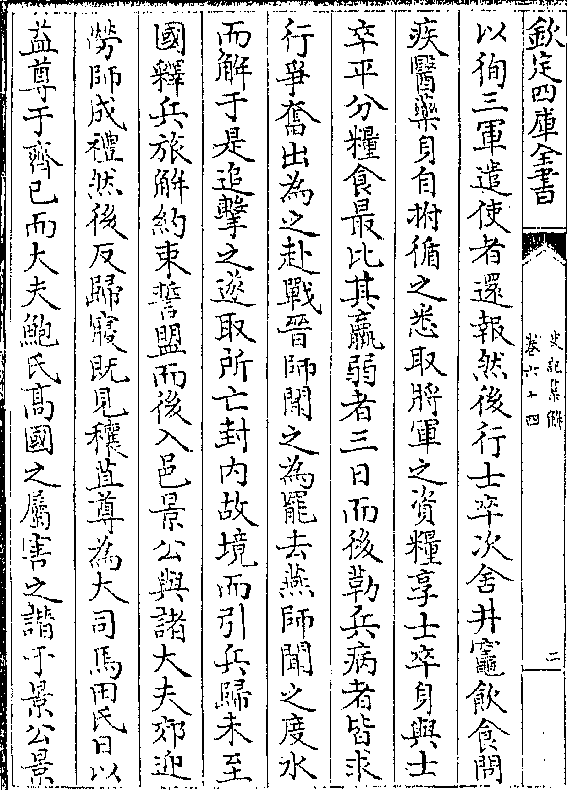 欽定四庫全書
史記集解
卷六十四
二
以徇三軍遣使者還報然後行士卒次舍井竈飲食問
疾醫藥身自拊循之悉取將軍之資糧享士卒身與士
卒平分糧食最比其羸弱者三日而後勒兵病者皆求
行爭奮出為之赴戰晉師聞之為罷去燕師聞之度水
而解于是追擊之遂取所亡封內故境而引兵歸未至
國釋兵旅解約束誓盟而後入邑景公與諸大夫郊迎
勞師成禮然後反歸寢既見穰苴尊為大司馬田氏日以
益尊于齊已而大夫鮑氏髙國之屬害之譖于景公景